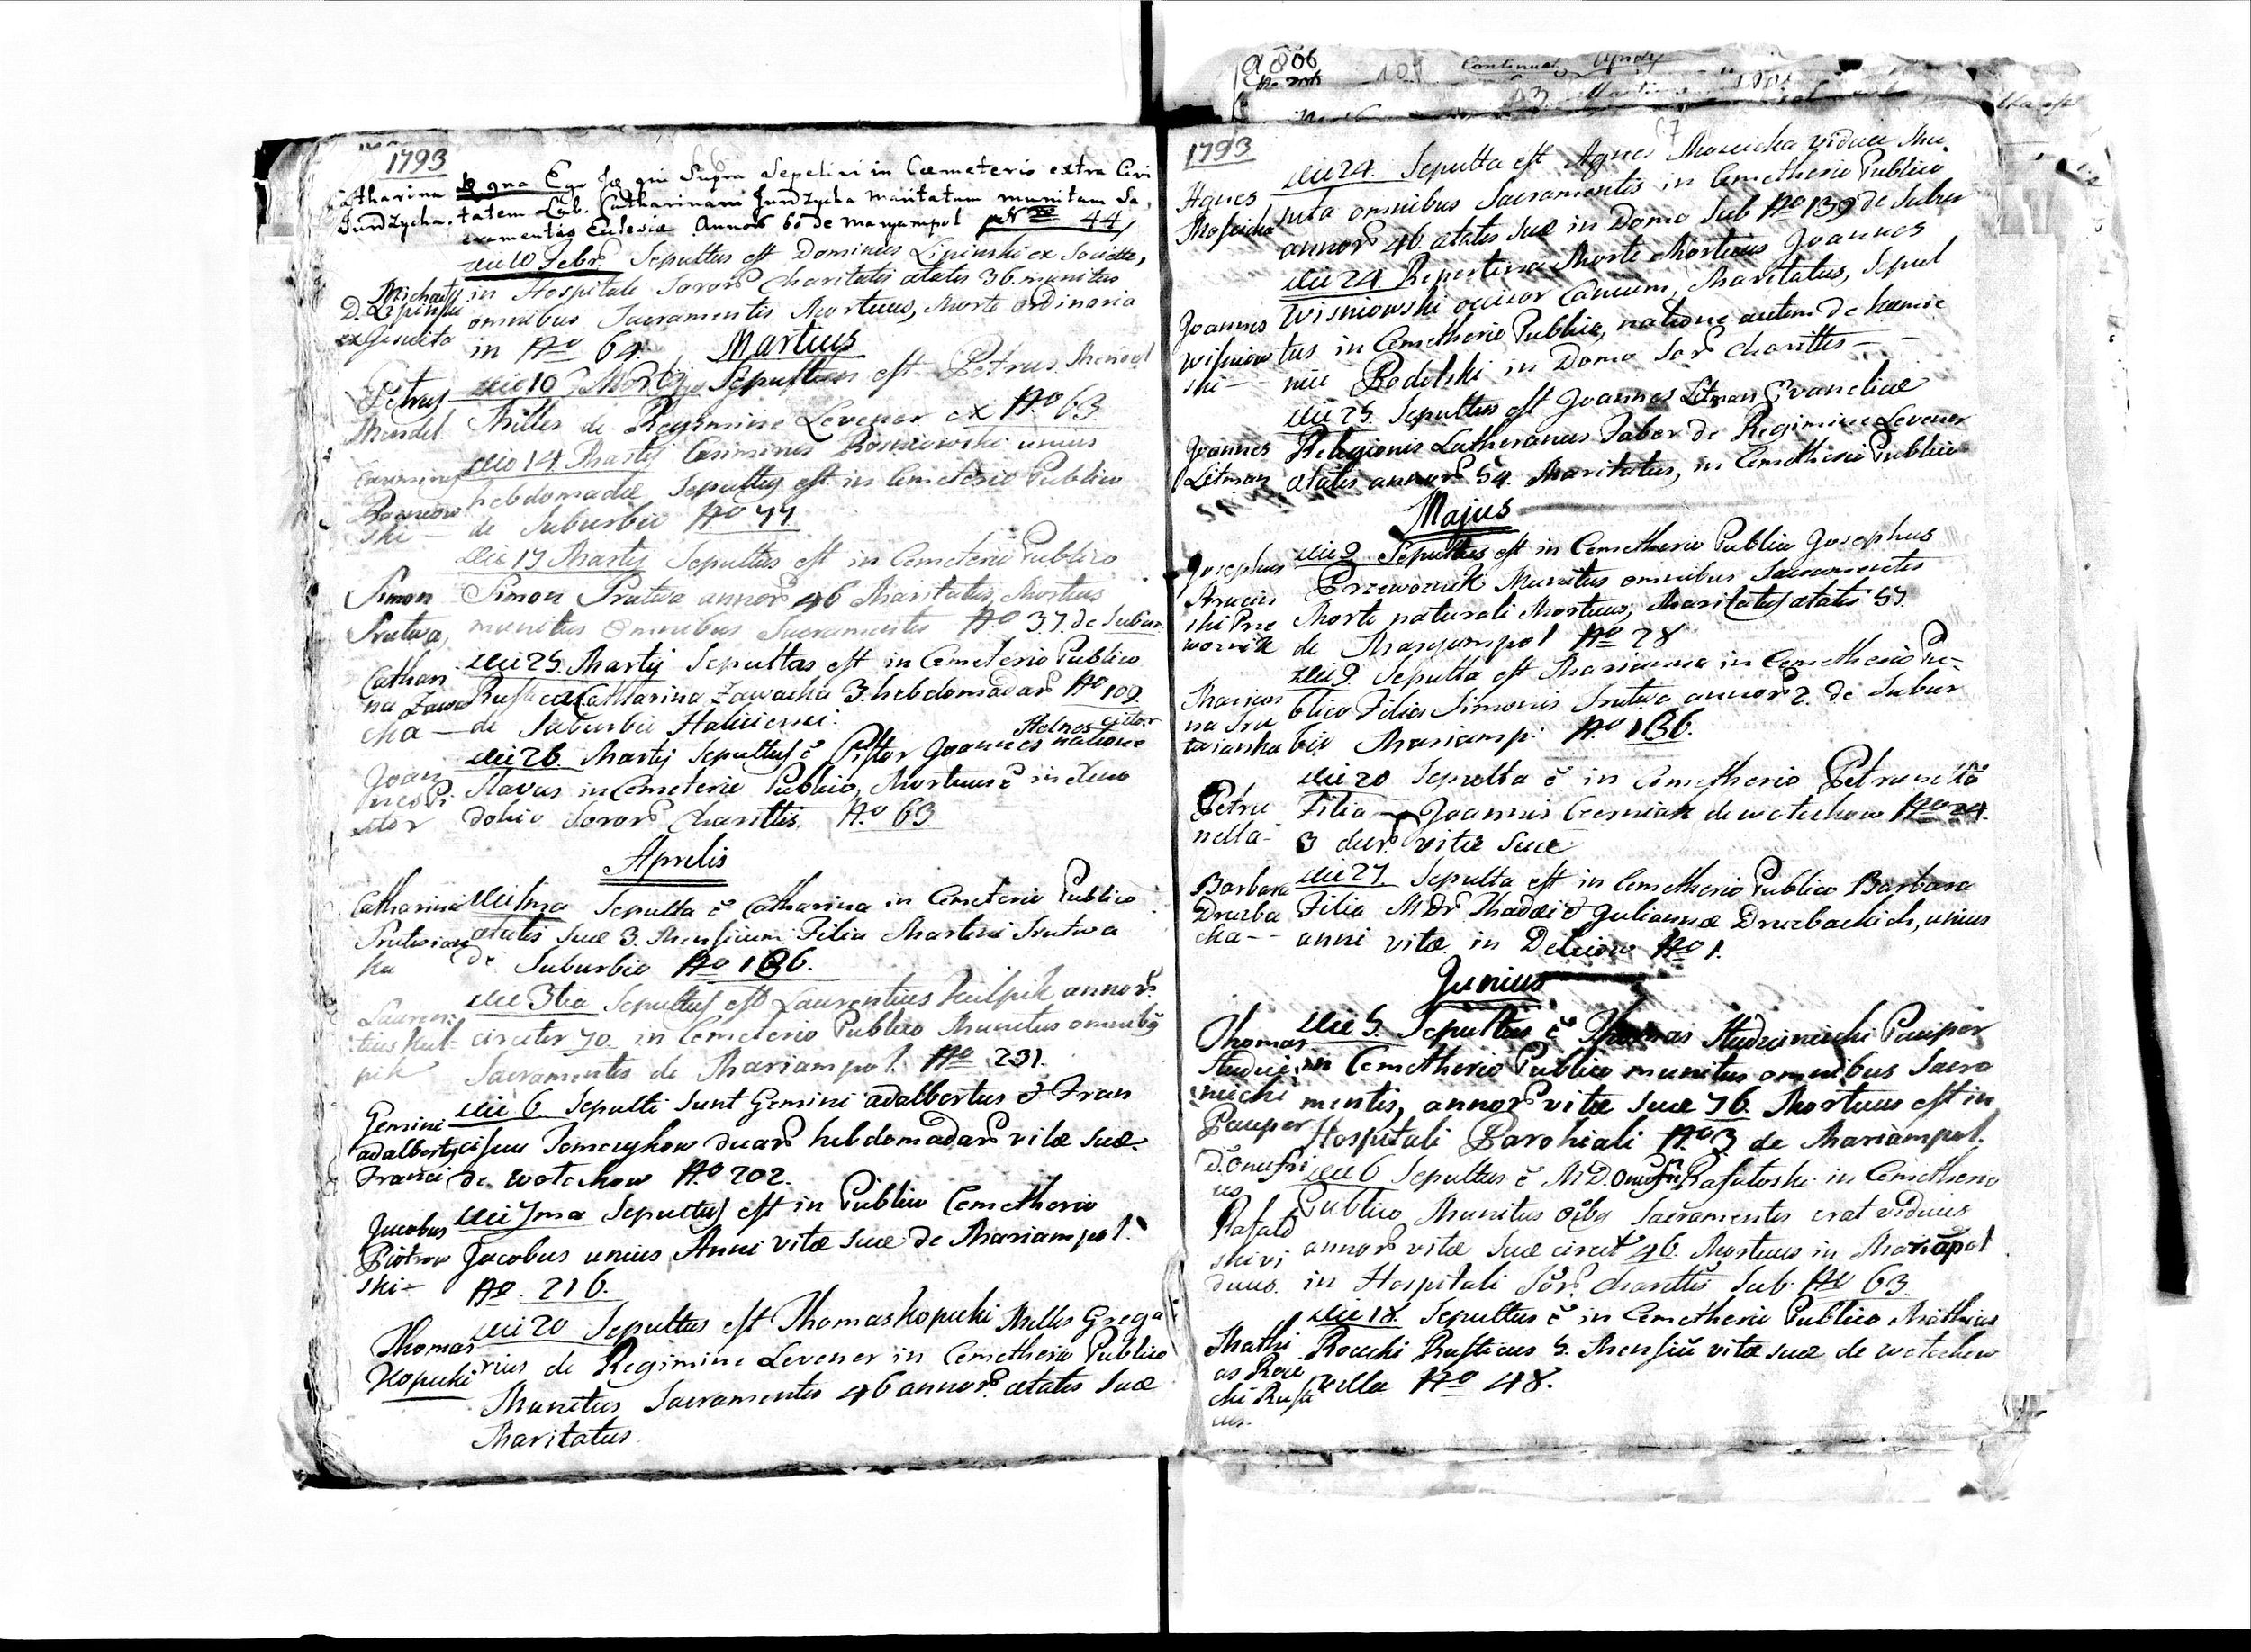 1793
Catharina Jurdzycha. qua Ego Jdē qui Supra Sepelivi in Cæmeterio extra Civi
tatem Lab. Catharinam Jurdzycha maritatam munitam Sa,
cramentis Eclesiæ Annoȓ 60 de Maryampol 44
D. Michael Lipinski exJesuita die 10 Febr. Sepultus est Dominus Lipinski ex Societte,
in Hospitali Soroȓ Charitatis ætatis 36. munitus
omnibus Sacramentis Mortuus, Morte ordinaria
in No 64.
Martius
Petrus Mendel die 10 Martij Sepultus est Petrus Mendel
Milles de Regimine Levener ex No 63
die 14 Martij Casimirus Bosniowski unius
hebdomadæ Sepultus est in Cemeterio Publico
de Suburbio No 77
die 17 Martij Sepultus est in Cemeterio Publico
Simon Srutwa, Simon Srutwa annoȓ 46 Maritatus, Mortuus
munitus Omnibus Sacramentis No 37. de Subur.
Cathari na Zawa cka die 25. Martij Sepultas est in Cemeterio Publico
Rustica Catharina Zawacka 3. hebdomadaȓ No 109
de Suburbio Haliciensi.
die 26. Martij Sepultus ē Pistor Joannes natione
Slavus in Cemeterio Publico, Mortuus ē in Xeno
dohio Soroȓ Charittis. No 63.
Aprilis
Catharina Srutwian ka die 1ma Sepulta ē Catharina in Cemeterio Publico
ætatis Suæ 3. Mensium Filia Martini Srutwa
de Suburbio No 186.
Lauren tius Kul pik die 3tia Sepultus est Laurentius Kulpik annoȓ
circiter 70. in Cemeterio Publico Munitus omnibꝰ
Sacramentis de Mariampol. No 231.
Gemini adalbertꝰ Franci die 6 Sepulti Sunt Gemini adalbertus et Fran
ciscus Tomczykow duaȓ hebdomadaȓ vitæ Suæ
de wotochow No 202.
Jacobus Piotrow ski die 7ma Sepultus est in Publico Cemetherio
Jacobus unius Anni vitæ suæ de Mariampol.
No. 216.
Thomas Kopicki die 20 Sepultus est Thomas Kopicki Milles Grega
rius de Regimine Levener in Cemetherio Publico
Munitus Sacramentis 46 annoȓ ætatis Suæ
Maritatus.
1793
Agnes die 24. Sepulta est Agnes vidua Mu,
nita omnibus Sacramentis in Cemetherio Publico
annoȓ 46. ætatis Suæ in Domo Sub No 139 de Subur
die 24 Repentina Morte Mortuus Joannes
Joannes Wisniow ski Wisniowski Canum, Maritatus, Sepul
tus in Cemetherio Publico, natione autem de
Podolski in Domo Soȓ Charittis
die 25. Sepultus est Joannes Litman Evangelicæ
Joannes Litman Religionis Lutheranus Faber de Regimine Levener
ætatis annoȓ 54. Maritatus, in Cemetherio Publico
Majus
Josephus die 2 Sepultus est in Cemetherio Publico Josephus
Przewoznik Munitus omnibus Sacramentis
Morte naturali Mortuus, Maritatus ætatis 57.
de Maryampol No 28
die 9. Sepulta est Marianna in Cemetherio Pu-
blico Filia Simonis Srutwa annoȓ 2. de Subur
bio Mariamp: No 186.
die 20 Sepulta ē in Cemetherio Petrunella
Petru nella Filia Joannis Czerniak de wotochow No 24.
3 dieȓ vitæ Suæ
Barbara Druzba cka die 27. Sepulta est in Cemetherio Publico Barbara
Filia MDȓ Thadæi et Juliannæ Druzbackich, unius
anni vitæ in Deliow No 1.
Junius
Thomas Pauper die 5. Sepultus ē Thomas Studzieniecki Pauper
in Cemetherio Publico munitus omnibus Sacra
mentis, annoȓ vitæ Suæ 76. Mortuus est in
Hospitali Parohiali No 3 de Mariampol.
D. Onufri us Rafało ski vi duus. die 6 Sepultus ē M D. Onufri Rafałoski in Cemetherio
Publico Munitus oībꝰ Sacramentis erat viduus
annoȓ vitæ Suæ circit 46. Mortuus in Mariāpol
in Hospitali Soȓ Charittis Sub No 63.
die 18. Sepultus ē in Cemetherio Publico Mathias
Mathi as Rusti cus Rusticus 5. Mensiū vitæ suæ de wotochow
villa No 48.